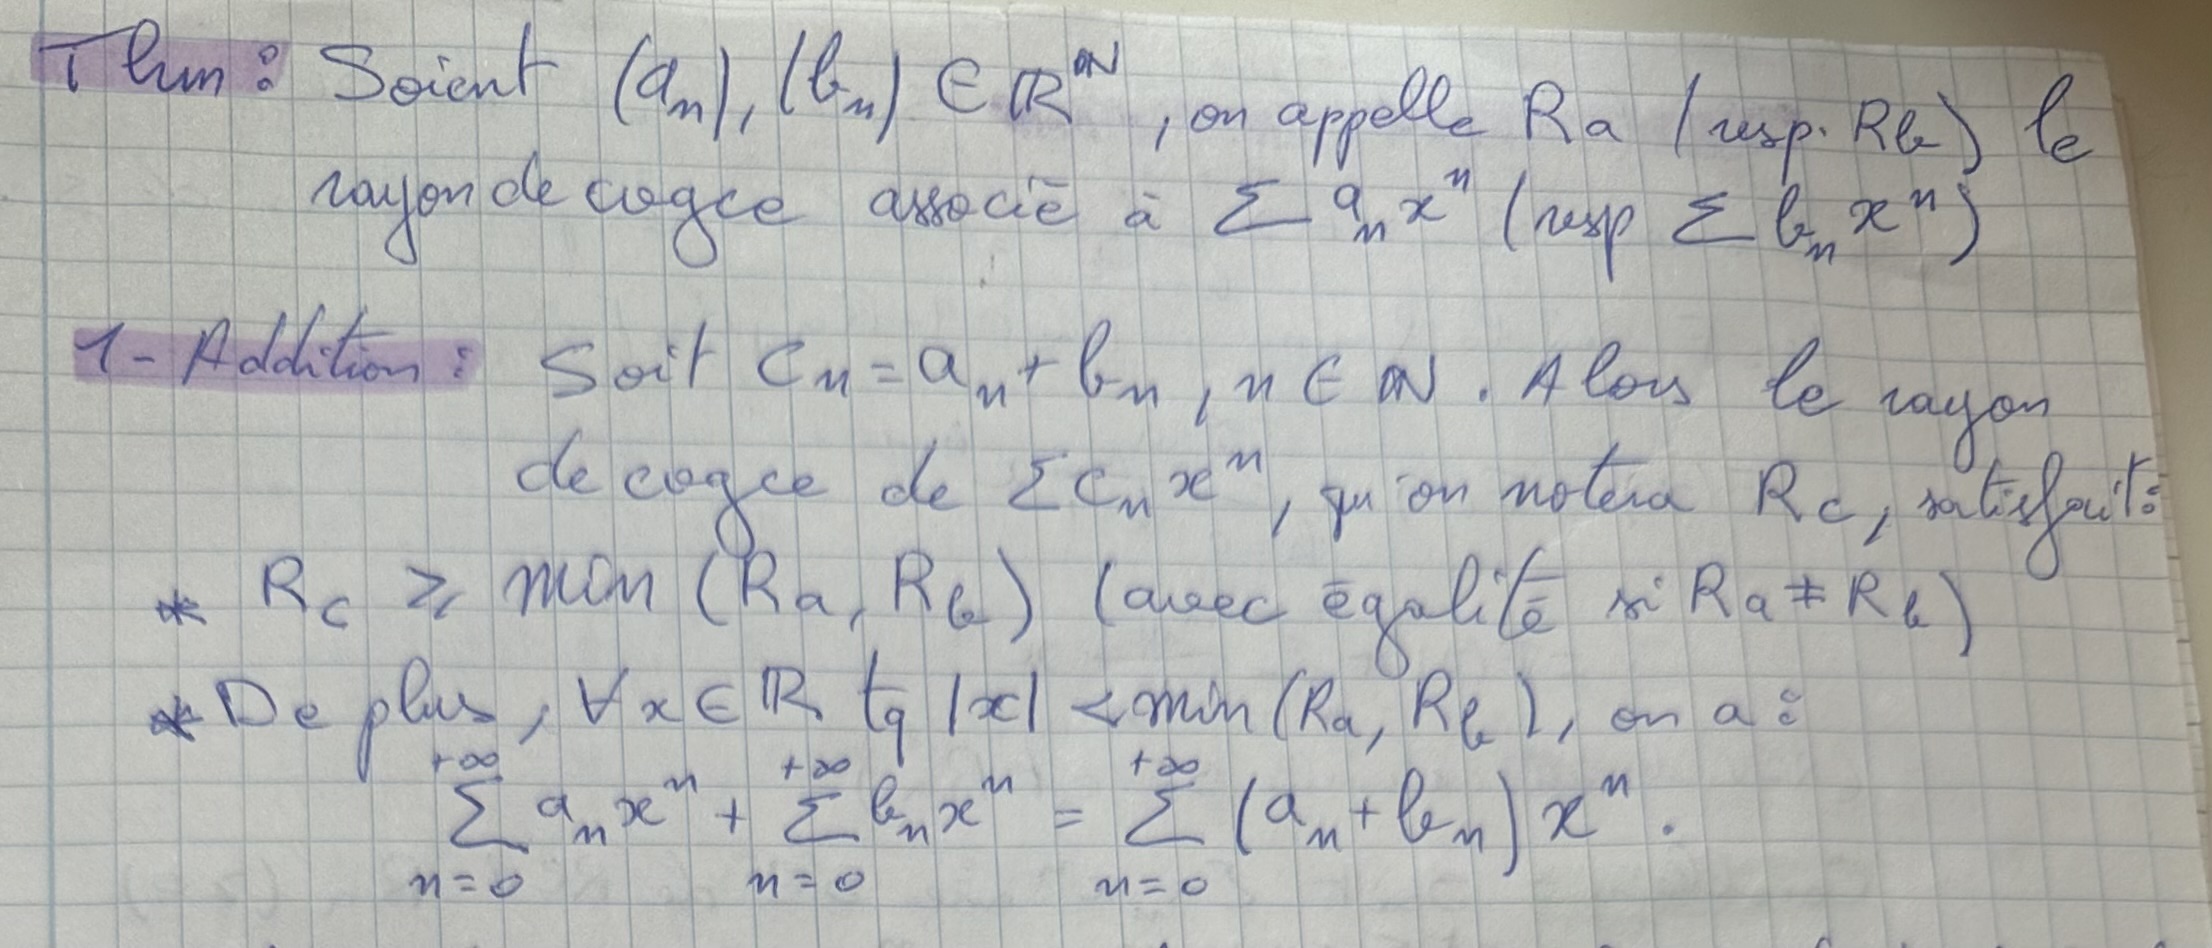 Thm : Soient (aₙ), (bₙ) ∈ ℝ^ℕ, on appelle Ra (resp. Rb) le
rayon de cvgce associé à Σ aₙxⁿ (resp Σ bₙxⁿ)
1- Addition : Soit cₙ = aₙ + bₙ, n ∈ ℕ. Alors le rayon
de cvgce de Σcₙxⁿ, qu'on notera Rc, satisfait :
* Rc ⩾ min (Ra, Rb) (avec égalité si Ra ≠ Rb)
* De plus, ∀x ∈ ℝ tq |x| < min (Ra, Rb), on a :
∑_{n=0}^{+∞} aₙxⁿ + ∑_{n=0}^{+∞} bₙxⁿ = ∑_{n=0}^{+∞} (aₙ + bₙ) xⁿ.